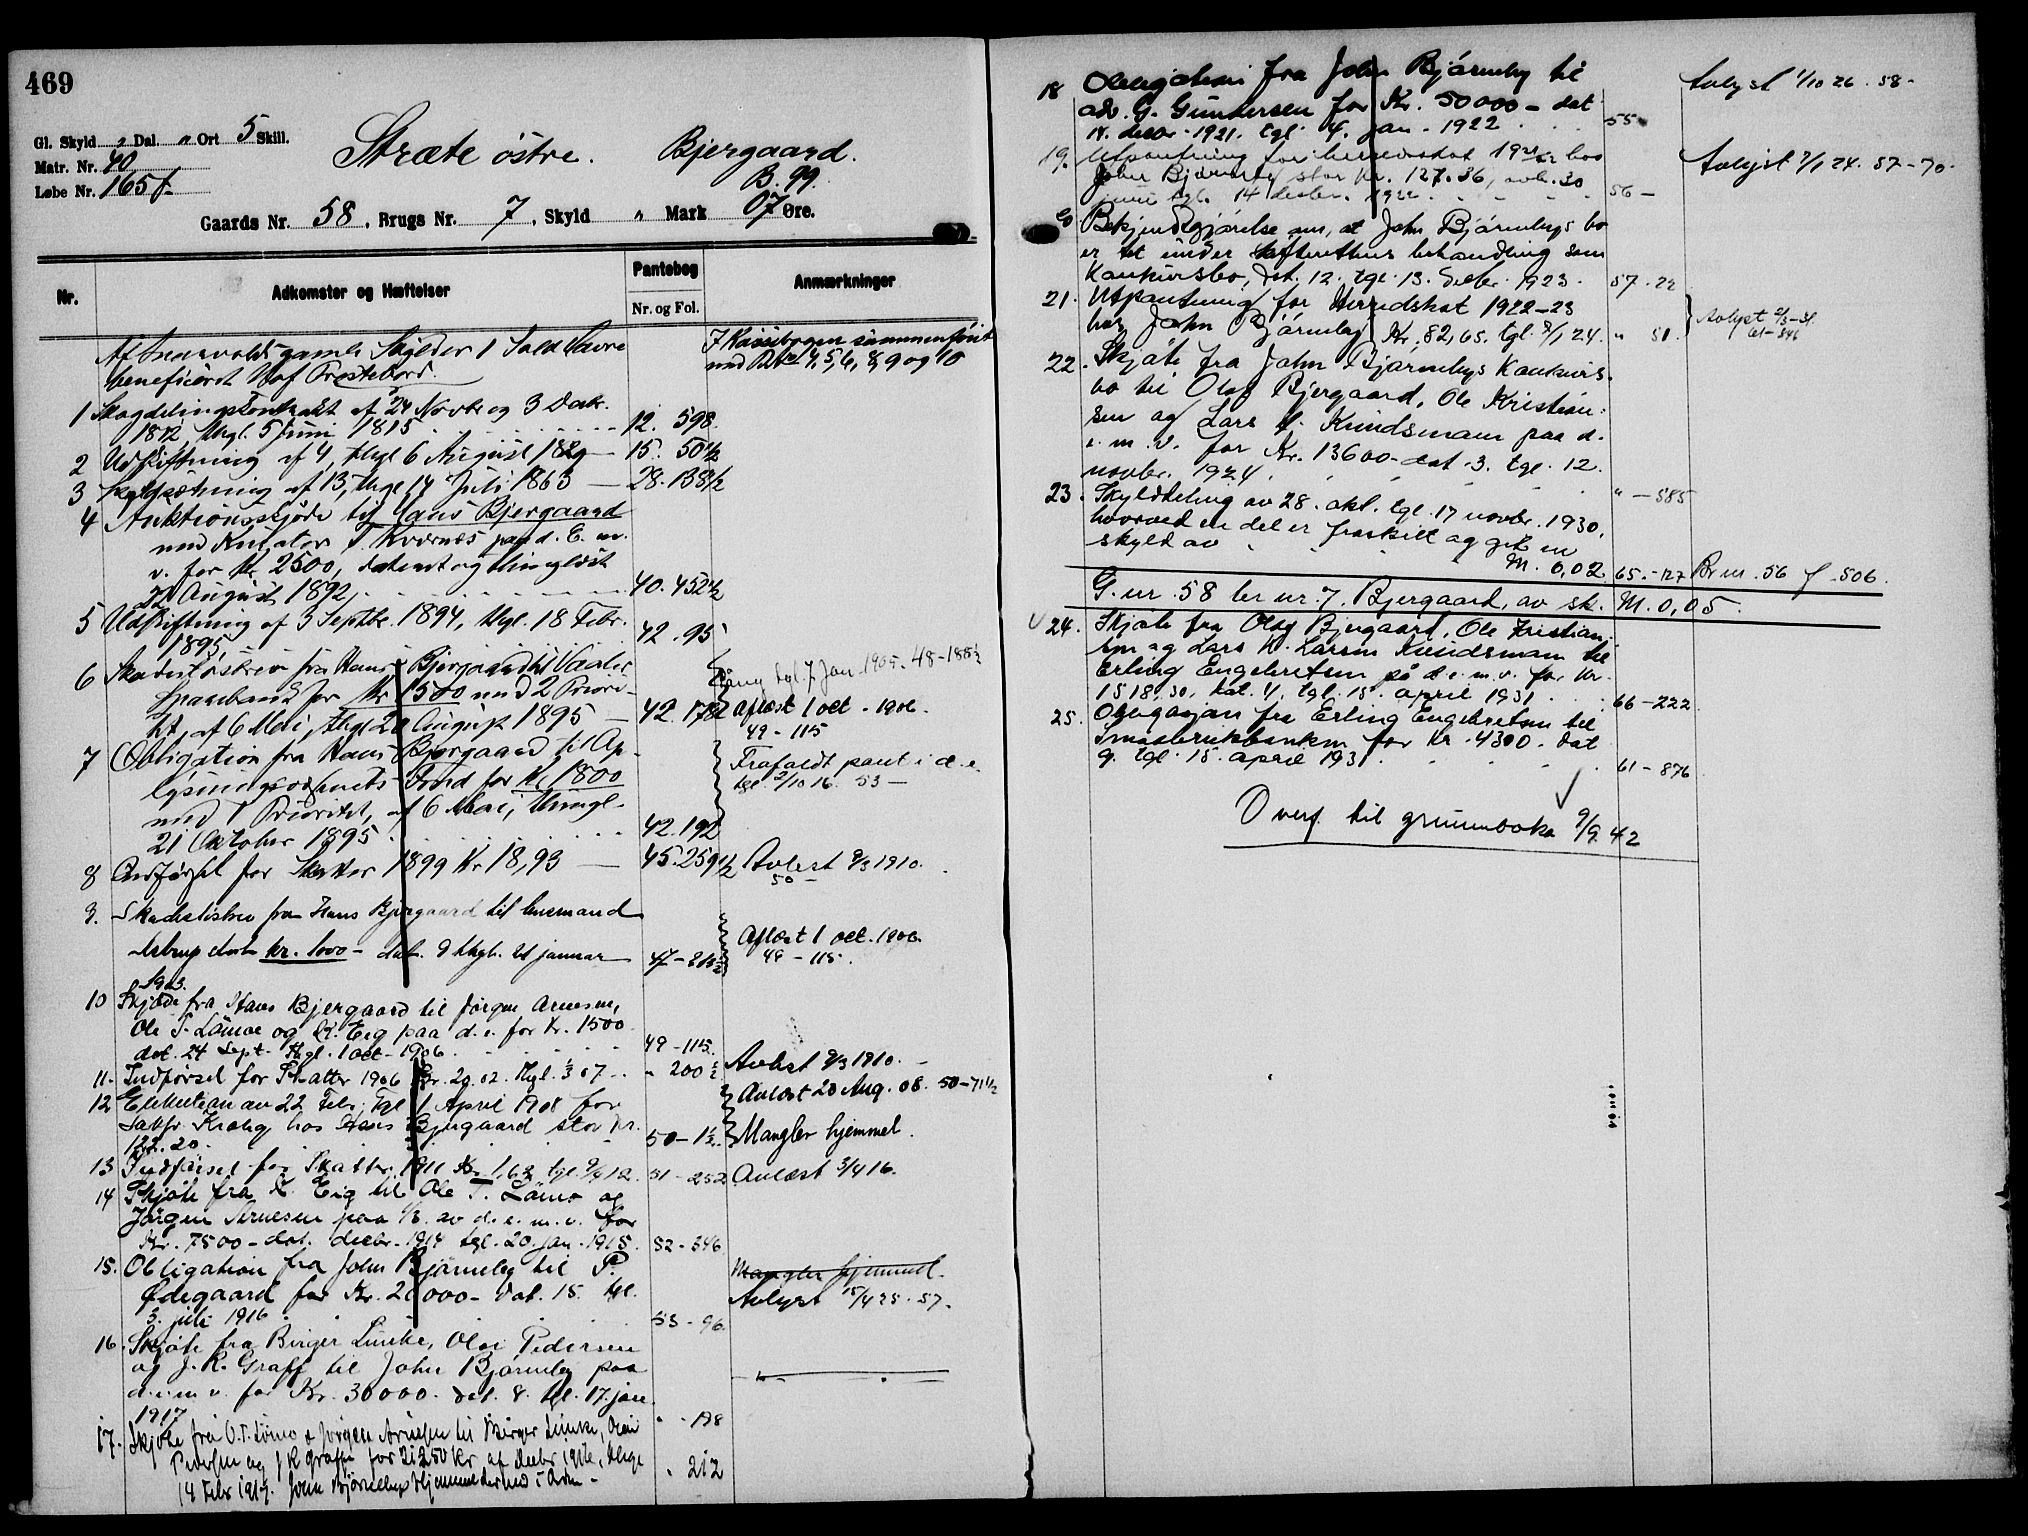 469
Gl. Skyld „ Dal. „ Ort 5 Skill.
Matr. Nr. 40
Løbe Nr. 165f
Stræte østre. Bjergaard.
B. 99.
Gaards Nr. 58, Brugs Nr. 7, Skyld „ Mark 07 Øre.
Nr.
Adkomster og Hæftelser
Pantebog
Nr. og Fol.
Anmærkninger
gamle Skylder 1 Sald Havre
beneficeret Præstebord.
med 4, 5, 6, 8, 9 og 10
1 Skogdelingskontrakt af 24 Novbr og 3 Decbr.
1812, thgl. 5 Juni 1815 12. 598.
2 Udskiftning af 4, thgl 6 August 1829 15. 50 1/2
3 Skyldsætning af 13, thgl 14 Juli 1863 28. 138 1/2
4 Auktionsskjøde til Hans Bjergaard
med Kurator T. Kværnes paa d. E. m.
v. for Kr 2500, dateret og thinglæst
22 August 1892 40. 452 1/2
5 Udskiftning af 3 Septbr. 1894, thgl. 18 Febr.
1895 42. 95
6 Skadesløsbrev fra Hans Bjergaard til Vaaler
Sparebank for Kr 1500 med 2 Priori-
tet, af 6 Mai, thgl 20 August 1895 42. 178
tgl. 7 Jan 1905. 48-188 1/2
Aflæst 1 oct. 1906.
49-115
7 Obligation fra Hans Bjergaard til Op-
lysningsvæsenets Fond for Kr 1800
med 1 Prioritet, af 6 Mai, thingl.
21 Oktober 1895 42. 192
Frafaldt pant i d. e.
tgl. 2/10 16. 53-
8 Indførsel for Skatter 1899 Kr 18,93 45. 259 1/2
Avlæst 9/3 1910.
50-
9. Skadesløsbrev fra Hans Bjergaard til lensmand
Astrup stort kr. 1000 - dat. 9 thgl. 21 januar
1903. 47-
Aflæst 1 oct. 1906.
49-115.
10 Skjøde fra Hans Bjergaard til Jørgen Arnesen,
Ole T. Lømoe og K. Eig paa d. e. for Kr. 1500
dat. 24 Sept. thgl. 1 oct - 1906. 49-115.
11. Indførsel for Skatter 1906 Kr. 29.02. thgl. 1/3 07. " 200 1/2
Avlæst 9/3 1910.
12 Exekution av 22 Febr. tgl 1 April 1908 for
Krohg hos Hans Bjergaard stor kr.
122.20. 50-1 1/2.
Avlæst 20 Aug. 08. 50-71 1/2
Mangler hjemmel.
13 Indførsel for Skatter 1911 Kr. 1,62 tgl. 9/4 12. 51-252
Avlæst 3/4 16.
14 Skjøte fra K. Eig til Ole T. Lømo og
Jørgen Arnesen paa 1/3 av d. e. m. v. for
Kr. 7500 - dat. decbr. 1914 tgl. 20. jan. 1915. 52-346
15. Obligation fra John Bjørneby til P.
Ødegaard for Kr. 20000 - dat. 15. tgl.
3. juli 1916 53-96.
Mangler hjemmel.
Avlyst 15/4 25. 57.
16. Skjøte fra Birger Lunke, Olai Pedersen
og J. R. Graff til John Bjørneby paa
d. e. m v. for Kr. 30000. dat. 8. tgl. 17. jan.
1917 " - 198
17. Skjøte fra O. T. Lømo & Jørgen Arnesen til Birger Lunke, Olai
Pedersen og J R Graff for 31250 kr af decbr 1916, thlgt
14 Febr 1917. John Bjørnebys Hjemmel dermed i Orden - " 212
18 Obligation fra John Bjørneby til
adv. G. Gundersen for Kr. 50000 - dat
14. decbr. 1921. tgl. 4. jan. 1922. 55
Avlyst 1/10 26. 58-
19. Utpantning for herredsskat hos
John Bjørneby stor Kr. 127.36, avh. 30
juni tgl. 14 decbr. 1922 56-
Avlyst 7/1 24. 57-70.
20 Bekjendtgjørelse om, at John Bjørnebys bo
er tat under skifterettens behandling som
Konkursbo, dat. 12. tgl. 13. decbr. 1923. 57-22
21. Utpantning for Herredskat 1922-23
hos John Bjørneby Kr. 82,65. tgl. 8/1 24. " 51.
Avlyst 2/3-31.
61-346
22. Skjøte fra John Bjørnebys Konkurs-
bo til Olaf Bjergaard, Ole Kristian-
sen og Lars L. Knudsmoen paa d.
e. m. v. for Kr. 13600 - dat. 3. tgl. 12.
novbr. 1924. " -585
23. Skylddeling av 28. okt. tgl. 17 novbr. 1930,
hvorved en del er fraskilt og git en
skyld av M. 0,02 65.-127 Br nr. 56 f -506.
G. nr. 58 br nr. 7. Bjergaard, av sk. M. 0,05.
24. Skjøte fra Olaf Bjergaard, Ole Kristian-
sen og Lars K. Larsen Knudsmoen til
Erling Engebretsen på d. e. m. v. for Kr.
1518,30. dat. 4. tgl. 15. april 1931. 66-222
25. Obligasjon fra Erling Engebretsen til
Småbrukbanken for Kr. 4300. dat
9. tgl. 15. april 1931. 61-876
Overf. til grunnboka 9/9 42